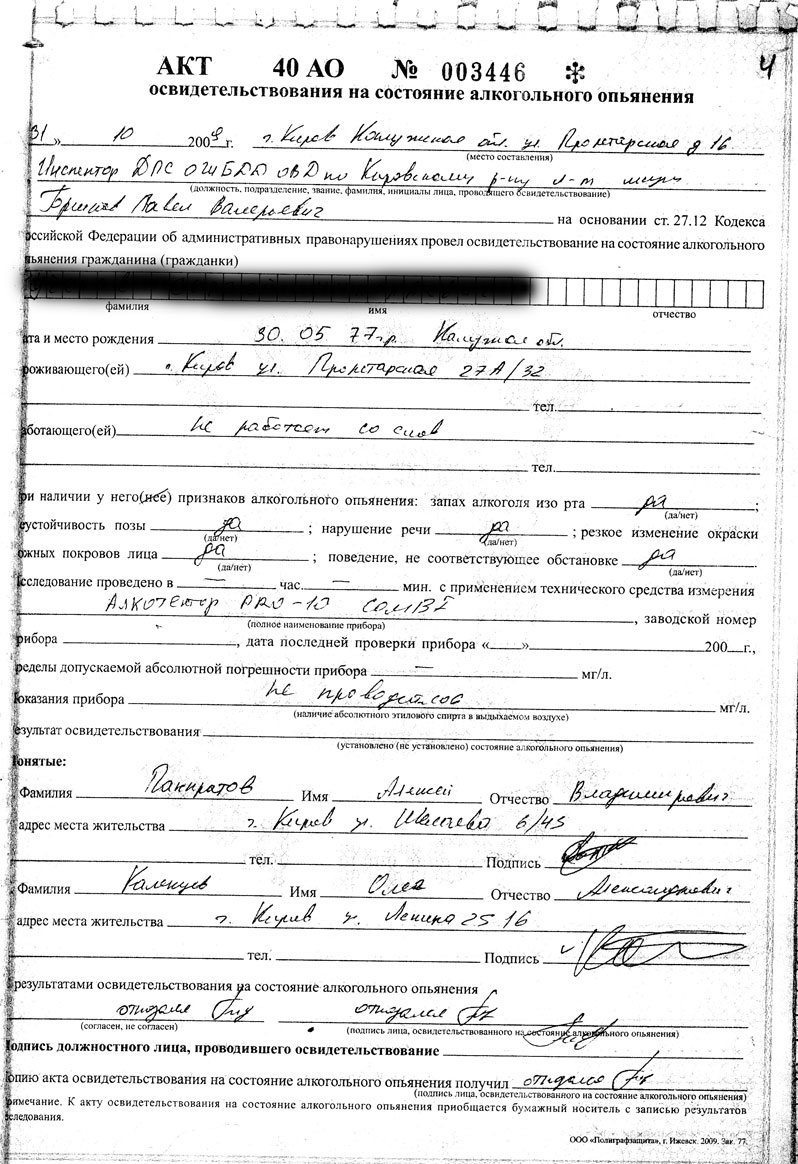 4
АКТ 40 АО № 003446 ✻
освидетельствования на состояние алкогольного опьянения
31 » 10 2009 г. г. Киров Калужская обл. ул. Пролетарская д 16
(место составления)
Инспектор ДПС ОГИБДД ОВД по Кировскому р-ну л-т
(должность, подразделение, звание, фамилия, инициалы лица, проводящего освидетельствование)
Павел Валерьевич на основании ст. 27.12 Кодекса
оссийской Федерации об административных правонарушениях провел освидетельствование на состояние алкогольного
пьянения гражданина (гражданки)
фамилия имя отчество
ата и место рождения 30. 05 77г.р. Калужская обл.
роживающего(ей) г. Киров ул. Пролетарская 27А/32
тел.
аботающего(ей) не работает со слов
тел.
ри наличии у него(нее) признаков алкогольного опьянения: запах алкоголя изо рта да ;
(да/нет)
еустойчивость позы да ; нарушение речи да ; резкое изменение окраски
(да/нет) (да/нет)
ожных покровов лица да ; поведение, не соответствующее обстановке да
(да/нет) (да/нет)
сследование проведено в — час. — мин. с применением технического средства измерения
Алкотектор PRO-10 COMBI , заводской номер
(полное наименование прибора)
рибора , дата последней проверки прибора « » 200 г.,
ределы допускаемой абсолютной погрешности прибора — мг/л.
оказания прибора не проводилось мг/л.
(наличие абсолютного этилового спирта в выдыхаемом воздухе)
езультат освидетельствования
(установлено (не установлено) состояние алкогольного опьянения)
онятые:
Фамилия Панкратов Имя Алексей Отчество Владимирович
адрес места жительства г. Киров ул. 6/43
тел. Подпись
Фамилия Имя Олег Отчество Александрович
адрес места жительства г. Киров ул. Ленина 25 16
тел. Подпись
результатами освидетельствования на состояние алкогольного опьянения
отказался отказался
(согласен, не согласен) (подпись лица, освидетельствованного на состояние алкогольного опьянения)
одпись должностного лица, проводившего освидетельствование
опию акта освидетельствования на состояние алкогольного опьянения получил отказался
(подпись лица, освидетельствованного на состояние алкогольного опьянения)
римечание. К акту освидетельствования на состояние алкогольного опьянения приобщается бумажный носитель с записью результатов
сследования.
ООО «Полиграфзащита», г. Ижевск. 2009. Зак. 77.